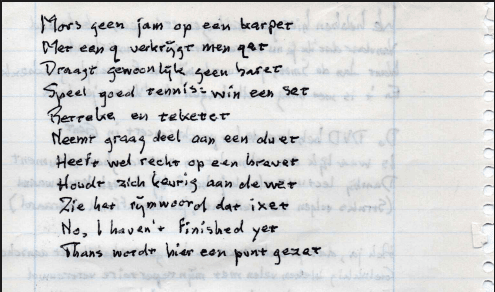 Mors geen jam op een karpet
Met een q verkrijgt men qet
Draagt gewoonlijk geen baret
Speel goed tennis: win een set
en teketet
Neemt graag deel aan een duet
Heeft wel recht op een brevet
Houdt zich keurig aan de wet
Zie het rijmwoord dat ixet
No, I haven't finished yet
Thans wordt hier een punt gezet